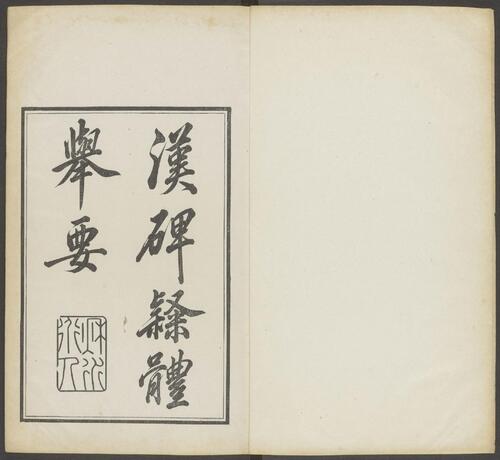 漢碑隸體
舉要